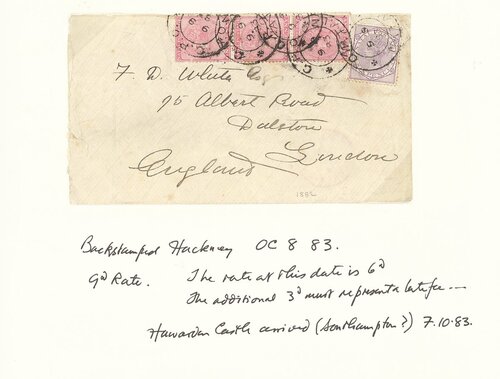 F. D. White Esq
95 Albert Road
Dalston
London
England
1882
Backstamped Hackney OC 8 83.
9d Rate. The rate at this date is 6d
The additional 3d must represent a late fee ---
Hawarden Castle arrived (Southampton?) 7.10.83.